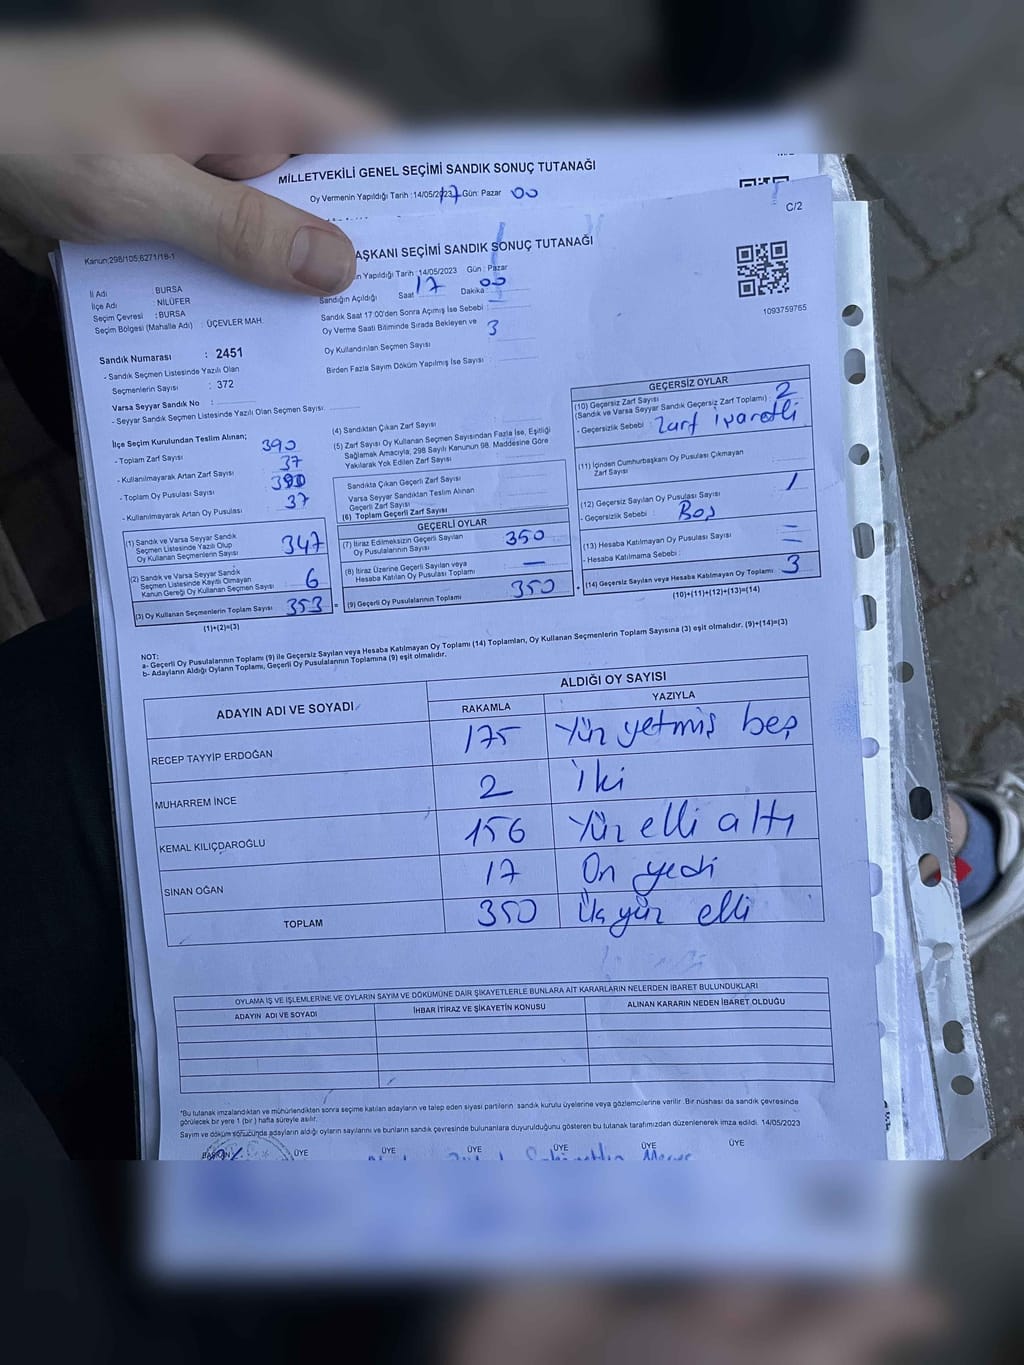 MİLLETVEKİLİ GENEL SEÇİMİ SANDIK SONUÇ TUTANAĞI
Oy Vermenin Yapıldığı Tarih :14/05/2023 Gün: Pazar
17 00
C/2
Kanun:298/105;6271/18-1
AŞKANI SEÇİMİ SANDIK SONUÇ TUTANAĞI
n Yapıldığı Tarih :14/05/2023 Gün : Pazar
Sandığın Açıldığı Saat 17 Dakika : 00
Sandık Saat 17:00'den Sonra Açılmış İse Sebebi :
Oy Verme Saati Bitiminde Sırada Bekleyen ve 3
Oy Kullandırılan Seçmen Sayısı
Birden Fazla Sayım Döküm Yapılmış İse Sayısı :
1093759765
İl Adı : BURSA
İlçe Adı : NİLÜFER
Seçim Çevresi : BURSA
Seçim Bölgesi (Mahalle Adı) : ÜÇEVLER MAH.
Sandık Numarası : 2451
- Sandık Seçmen Listesinde Yazılı Olan
Seçmenlerin Sayısı : 372
Varsa Seyyar Sandık No :
- Seyyar Sandık Seçmen Listesinde Yazılı Olan Seçmen Sayısı.
İlçe Seçim Kurulundan Teslim Alınan;
- Toplam Zarf Sayısı 390
- Kullanılmayarak Artan Zarf Sayısı 37
- Toplam Oy Pusulası Sayısı 390
- Kullanılmayarak Artan Oy Pusulası 37
(1) Sandık ve Varsa Seyyar Sandık
Seçmen Listesinde Yazılı Olup
Oy Kullanan Seçmenlerin Sayısı 347
(2) Sandık ve Varsa Seyyar Sandık
Seçmen Listesinde Kayıtlı Olmayan
Kanun Gereği Oy Kullanan Seçmen Sayısı 6
(3) Oy Kullanan Seçmenlerin Toplam Sayısı 353 =
(1)+(2)=(3)
(4) Sandıktan Çıkan Zarf Sayısı
(5) Zarf Sayısı Oy Kullanan Seçmen Sayısından Fazla İse, Eşitliği
Sağlamak Amacıyla, 298 Sayılı Kanunun 98. Maddesine Göre
Yakılarak Yok Edilen Zarf Sayısı
Sandıkta Çıkan Geçerli Zarf Sayısı
Varsa Seyyar Sandıktan Teslim Alınan
Geçerli Zarf Sayısı
(6) Toplam Geçerli Zarf Sayısı
GEÇERLİ OYLAR
(7) İtiraz Edilmeksizin Geçerli Sayılan
Oy Pusulalarının Sayısı 350
(8) İtiraz Üzerine Geçerli Sayılan veya
Hesaba Katılan Oy Pusulası Toplamı —
(9) Geçerli Oy Pusulalarının Toplamı 350 +
GEÇERSİZ OYLAR
(10) Geçersiz Zarf Sayısı
(Sandık ve Varsa Seyyar Sandık Geçersiz Zarf Toplamı) : 2
- Geçersizlik Sebebi : Zarf işaretli
(11) İçinden Cumhurbaşkanı Oy Pusulası Çıkmayan
Zarf Sayısı
(12) Geçersiz Sayılan Oy Pusulası Sayısı 1
- Geçersizlik Sebebi : Boş
(13) Hesaba Katılmayan Oy Pusulası Sayısı —
- Hesaba Katılmama Sebebi : —
(14) Geçersiz Sayılan veya Hesaba Katılmayan Oy Toplamı : 3
(10)+(11)+(12)+(13)=(14)
NOT:
a- Geçerli Oy Pusulalarının Toplamı (9) ile Geçersiz Sayılan veya Hesaba Katılmayan Oy Toplamı (14) Toplamları, Oy Kullanan Seçmenlerin Toplam Sayısına (3) eşit olmalıdır. (9)+(14)=(3)
b- Adayların Aldığı Oyların Toplamı, Geçerli Oy Pusulalarının Toplamına (9) eşit olmalıdır.
ADAYIN ADI VE SOYADI
ALDIĞI OY SAYISI
RAKAMLA YAZIYLA
RECEP TAYYİP ERDOĞAN 175 Yüz yetmiş beş
MUHARREM İNCE 2 İki
KEMAL KILIÇDAROĞLU 156 Yüz elli altı
SİNAN OĞAN 17 On yedi
TOPLAM 350 Üç yüz elli
OYLAMA İŞ VE İŞLEMLERİNE VE OYLARIN SAYIM VE DÖKÜMÜNE DAİR ŞİKAYETLERLE BUNLARA AİT KARARLARIN NELERDEN İBARET BULUNDUKLARI
ADAYIN ADI VE SOYADI İHBAR İTİRAZ VE ŞİKAYETİN KONUSU ALINAN KARARIN NEDEN İBARET OLDUĞU
*Bu tutanak imzalandıktan ve mühürlendikten sonra seçime katılan adayların ve talep eden siyasi partilerin sandık kurulu üyelerine veya gözlemcilerine verilir. Bir nüshası da sandık çevresinde
görülecek bir yere 1 (bir) hafta süreyle asılır.
Sayım ve döküm sonucunda adayların aldığı oyların sayılarını ve bunların sandık çevresinde bulunanlara duyurulduğunu gösteren bu tutanak tarafımızdan düzenlenerek imza edildi. 14/05/2023
BAŞKAN ÜYE ÜYE ÜYE ÜYE ÜYE ÜYE